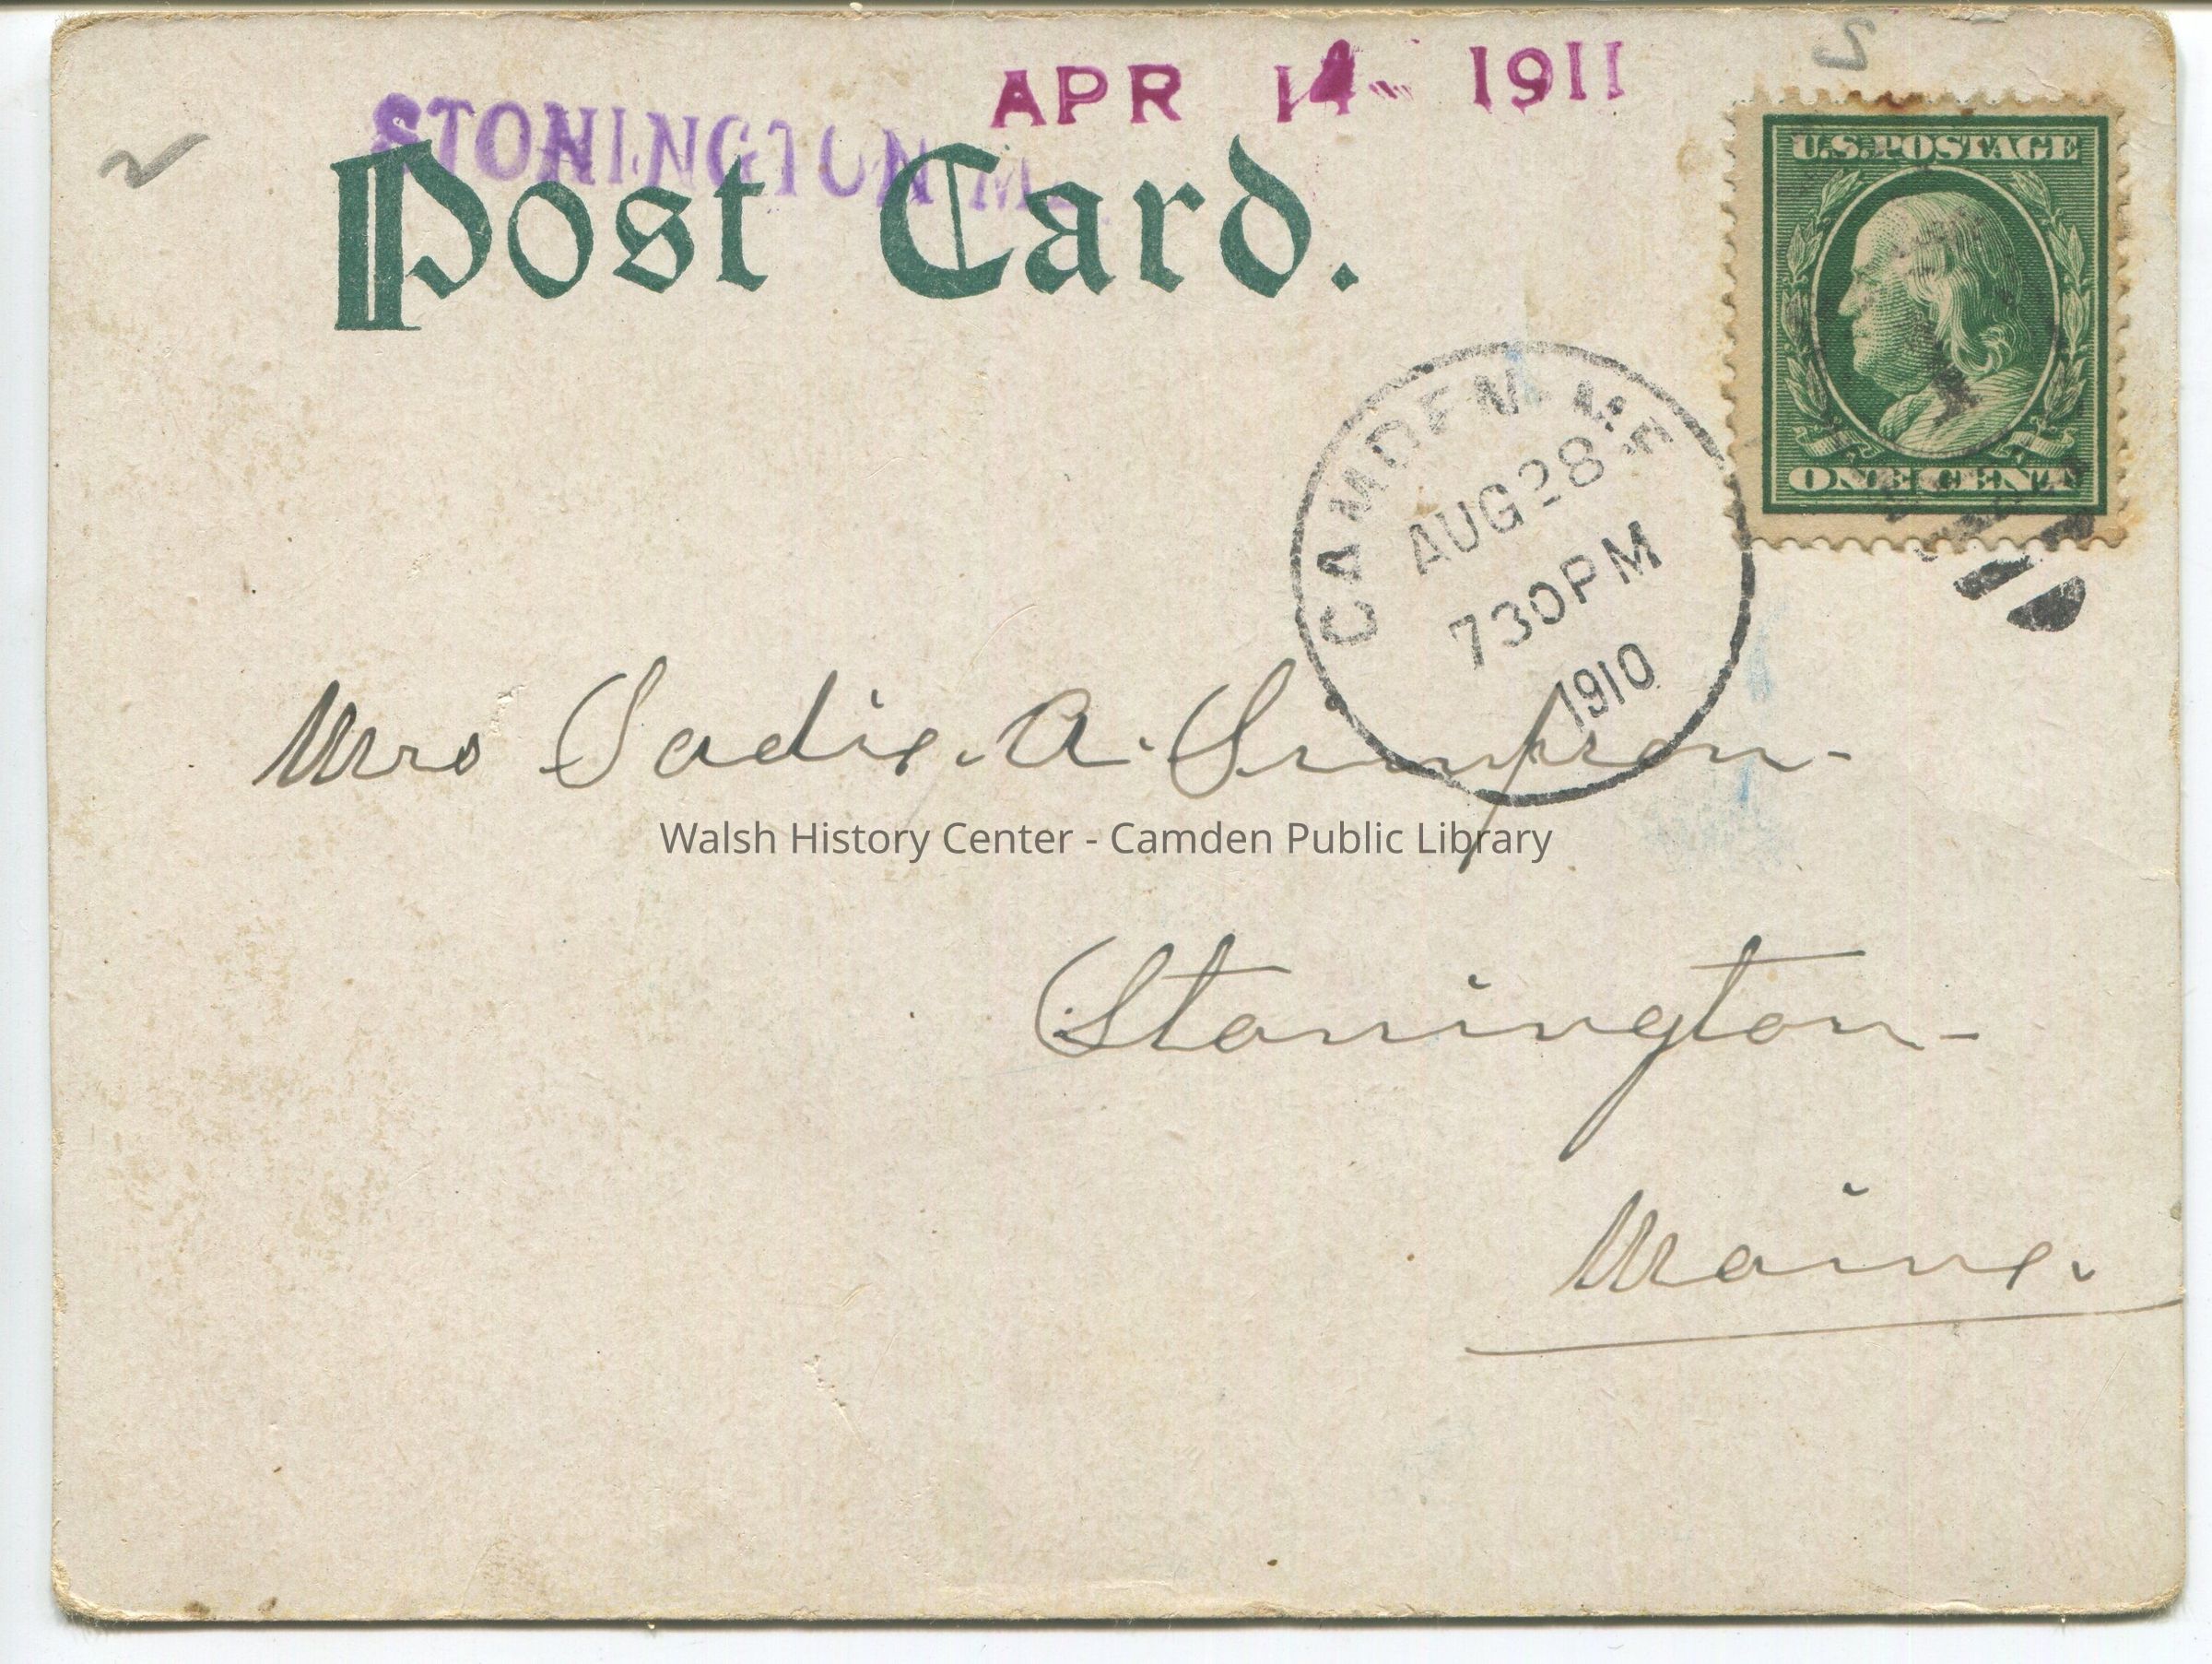 APR 14 1911
STONINGTON ME.
Post Card.
U.S. POSTAGE
ONE CENT
CAMDEN, ME.
AUG 28
730PM
1910
Mrs Sadie. A. Simpson-
Walsh History Center - Camden Public Library
Stonington-
Maine.